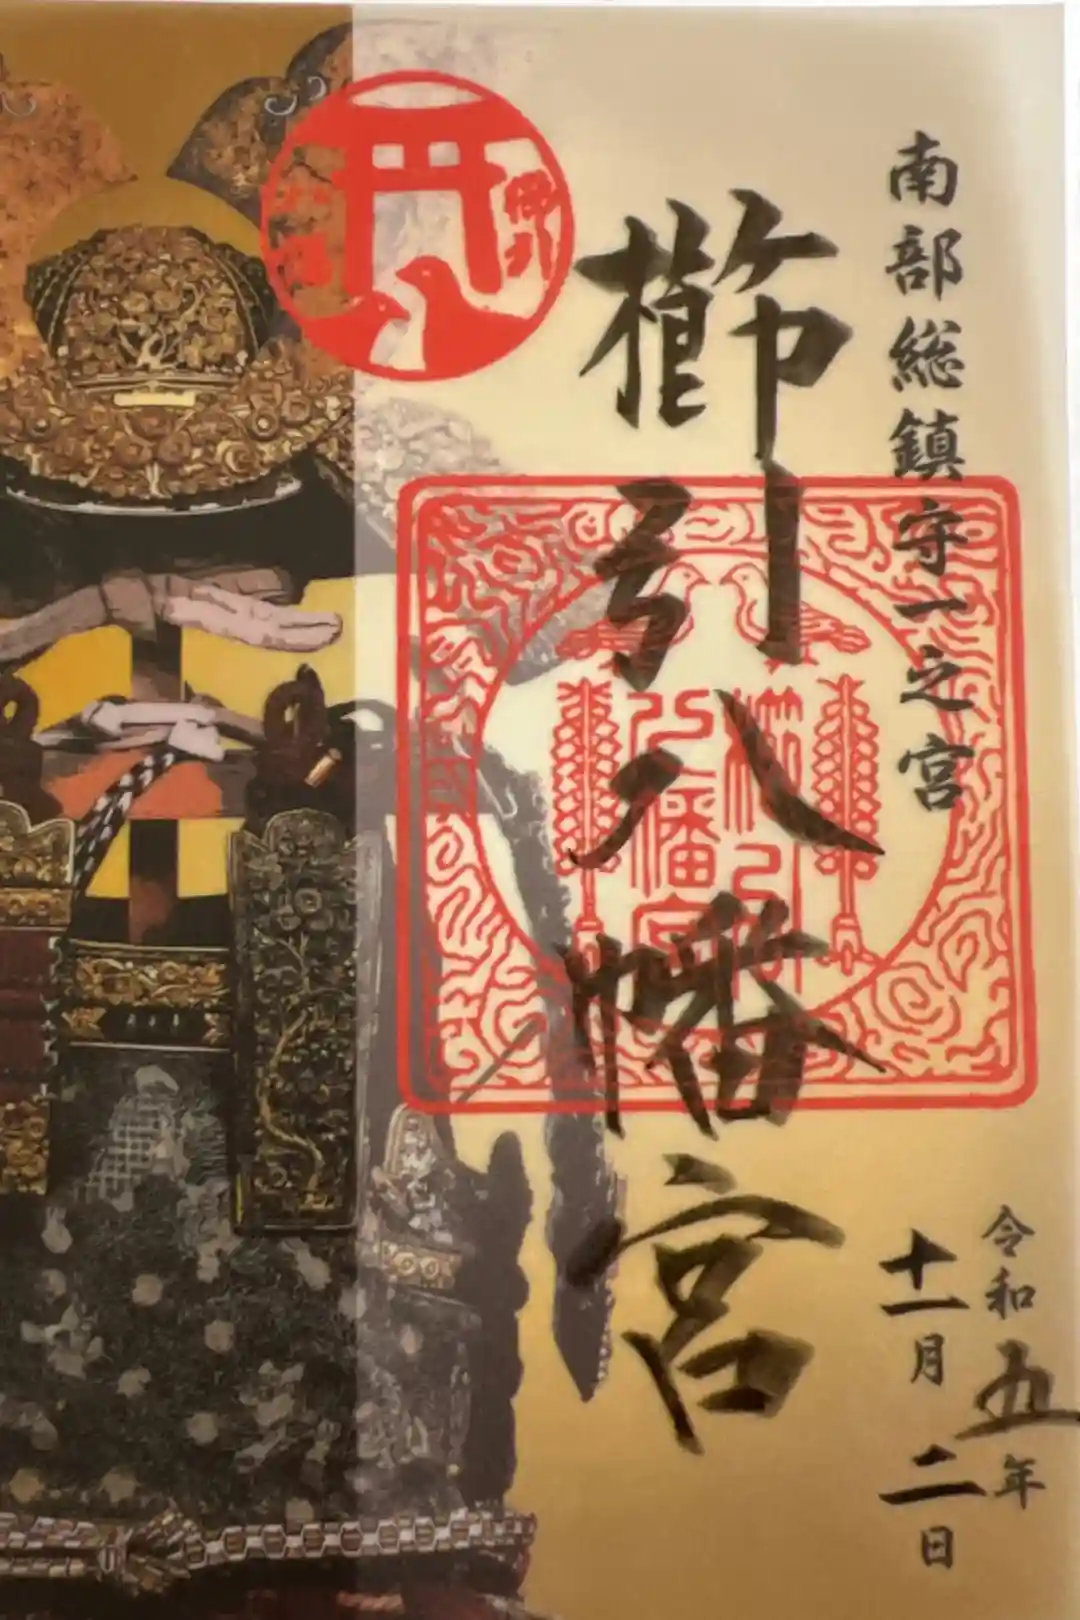 南部総鎮守一之宮
櫛引八幡宮
令和五年
十一月二日
櫛引
八幡宮